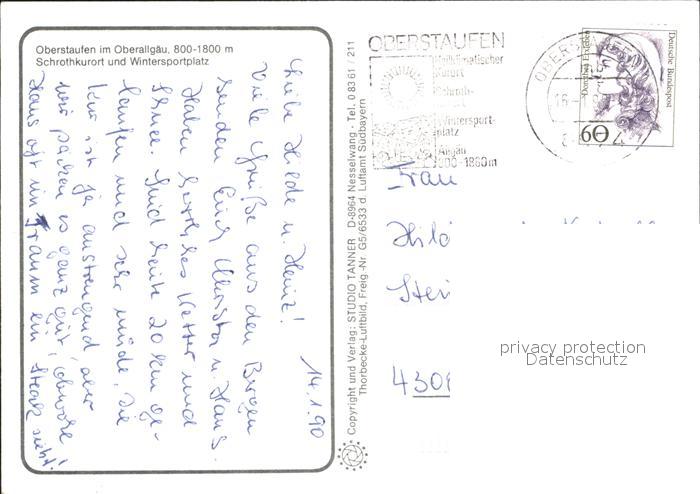 Oberstaufen im Oberallgäu, 800-1800 m
Schrothkurort und Wintersportplatz
14.1.90
Liebe Hilde u. Heinz!
Viele Grüße aus den Bergen
senden Euch Christa u. Hans.
Haben herrliches Wetter und
Schnee. Sind heute 20 km ge-
laufen und sehr müde. Die
Kur ist ja anstrengend aber
wir packen es ganz gut, obwohl
Hans oft im Traum ein Steak sieht!
Copyright und Verlag: STUDIO TANNER D-8964 Nesselwang · Tel. 0 83 61 / 211
Thorbecke-Luftbild, Freig.-Nr. G5/6533 d. Luftamt Südbayern
OBERSTAUFEN
Heilklimatischer
Kurort
Schroth-
Wintersport-
platz
Allgäu
800-1860m
OBERSTAUFEN
Dorothea Erxleben
Deutsche Bundespost
60
Frau
Hild
Stei
4308
privacy protection
Datenschutz